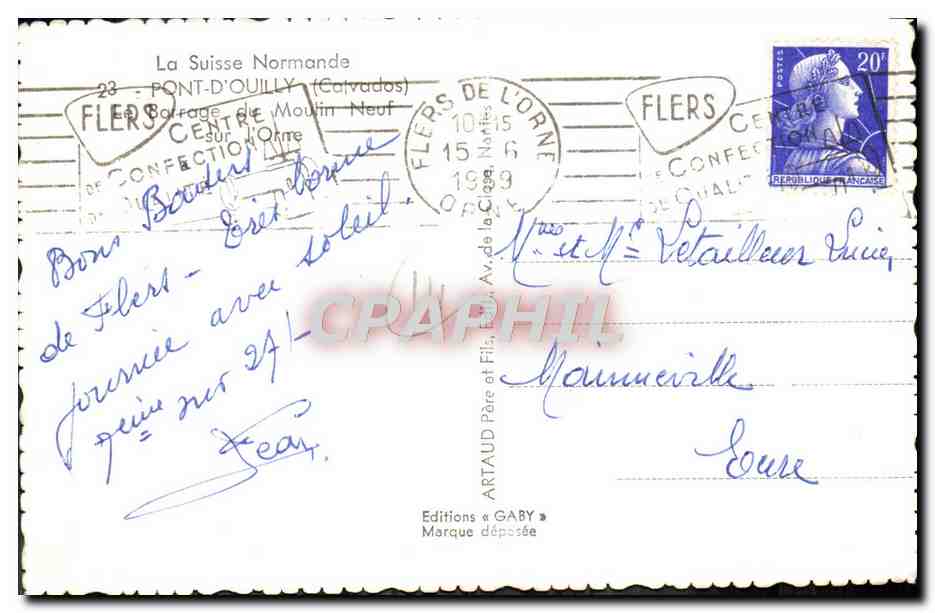 La Suisse Normande
23 - PONT-D'OUILLY (Calvados)
Le Barrage du Moulin Neuf
sur l'Orne
FLERS
CENTRE
DE CONFECTION
DE QUALITÉ
FLERS DE L'ORNE
15 - 6
1959
ORNE
FLERS
CENTRE
DE CONFECTION
DE QUALITÉ
POSTES
20F
REPUBLIQUE FRANÇAISE
Bons Baisers
de Flers - Très bonne
journée avec soleil.
7ème sur 27/-
Jean
Mme et Mr Letailleur Lucien
Mainneville
Eure
CPARHIL
ARTAUD Père et Fils, Edit., Av. de la Close, Nantes
Editions « GABY »
Marque déposée